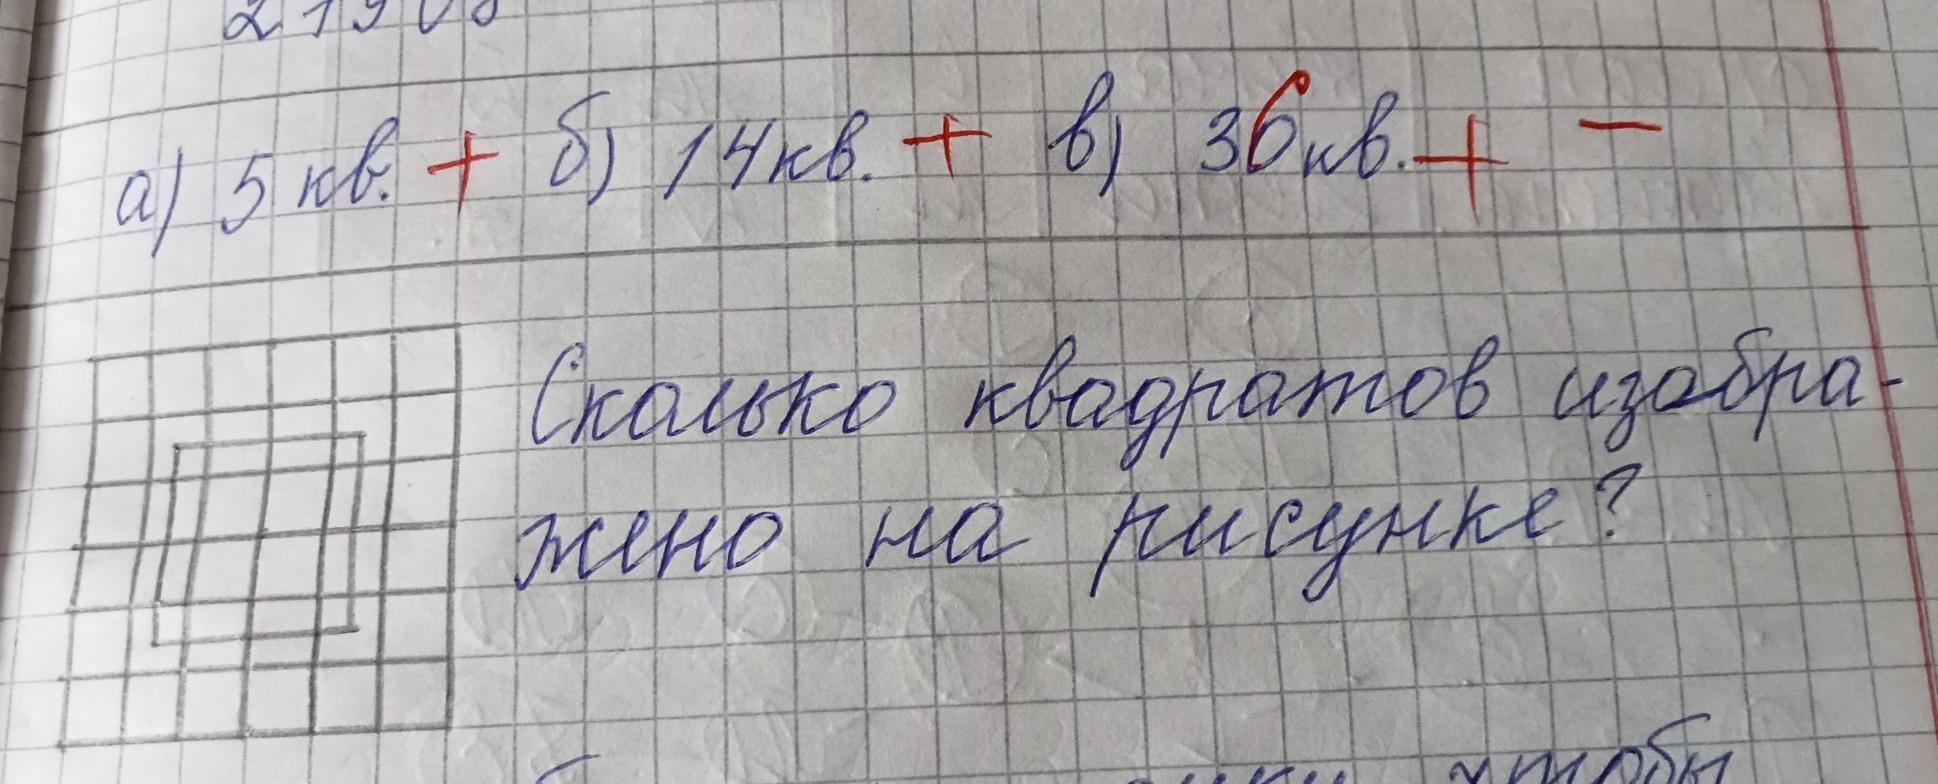 а) 5 кв. + б) 14 кв. + в) 36 кв. + −
Сколько квадратов изобра-
жено на рисунке?
чтобы